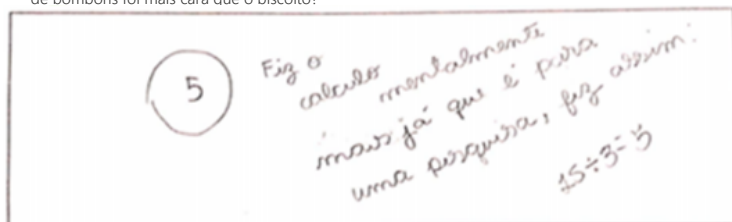 de bombons foi mais cara que o biscoito?
5
Fiz o
calculo mentalmente
mais já que é para
uma pesquisa, fiz assim:
15÷3=5